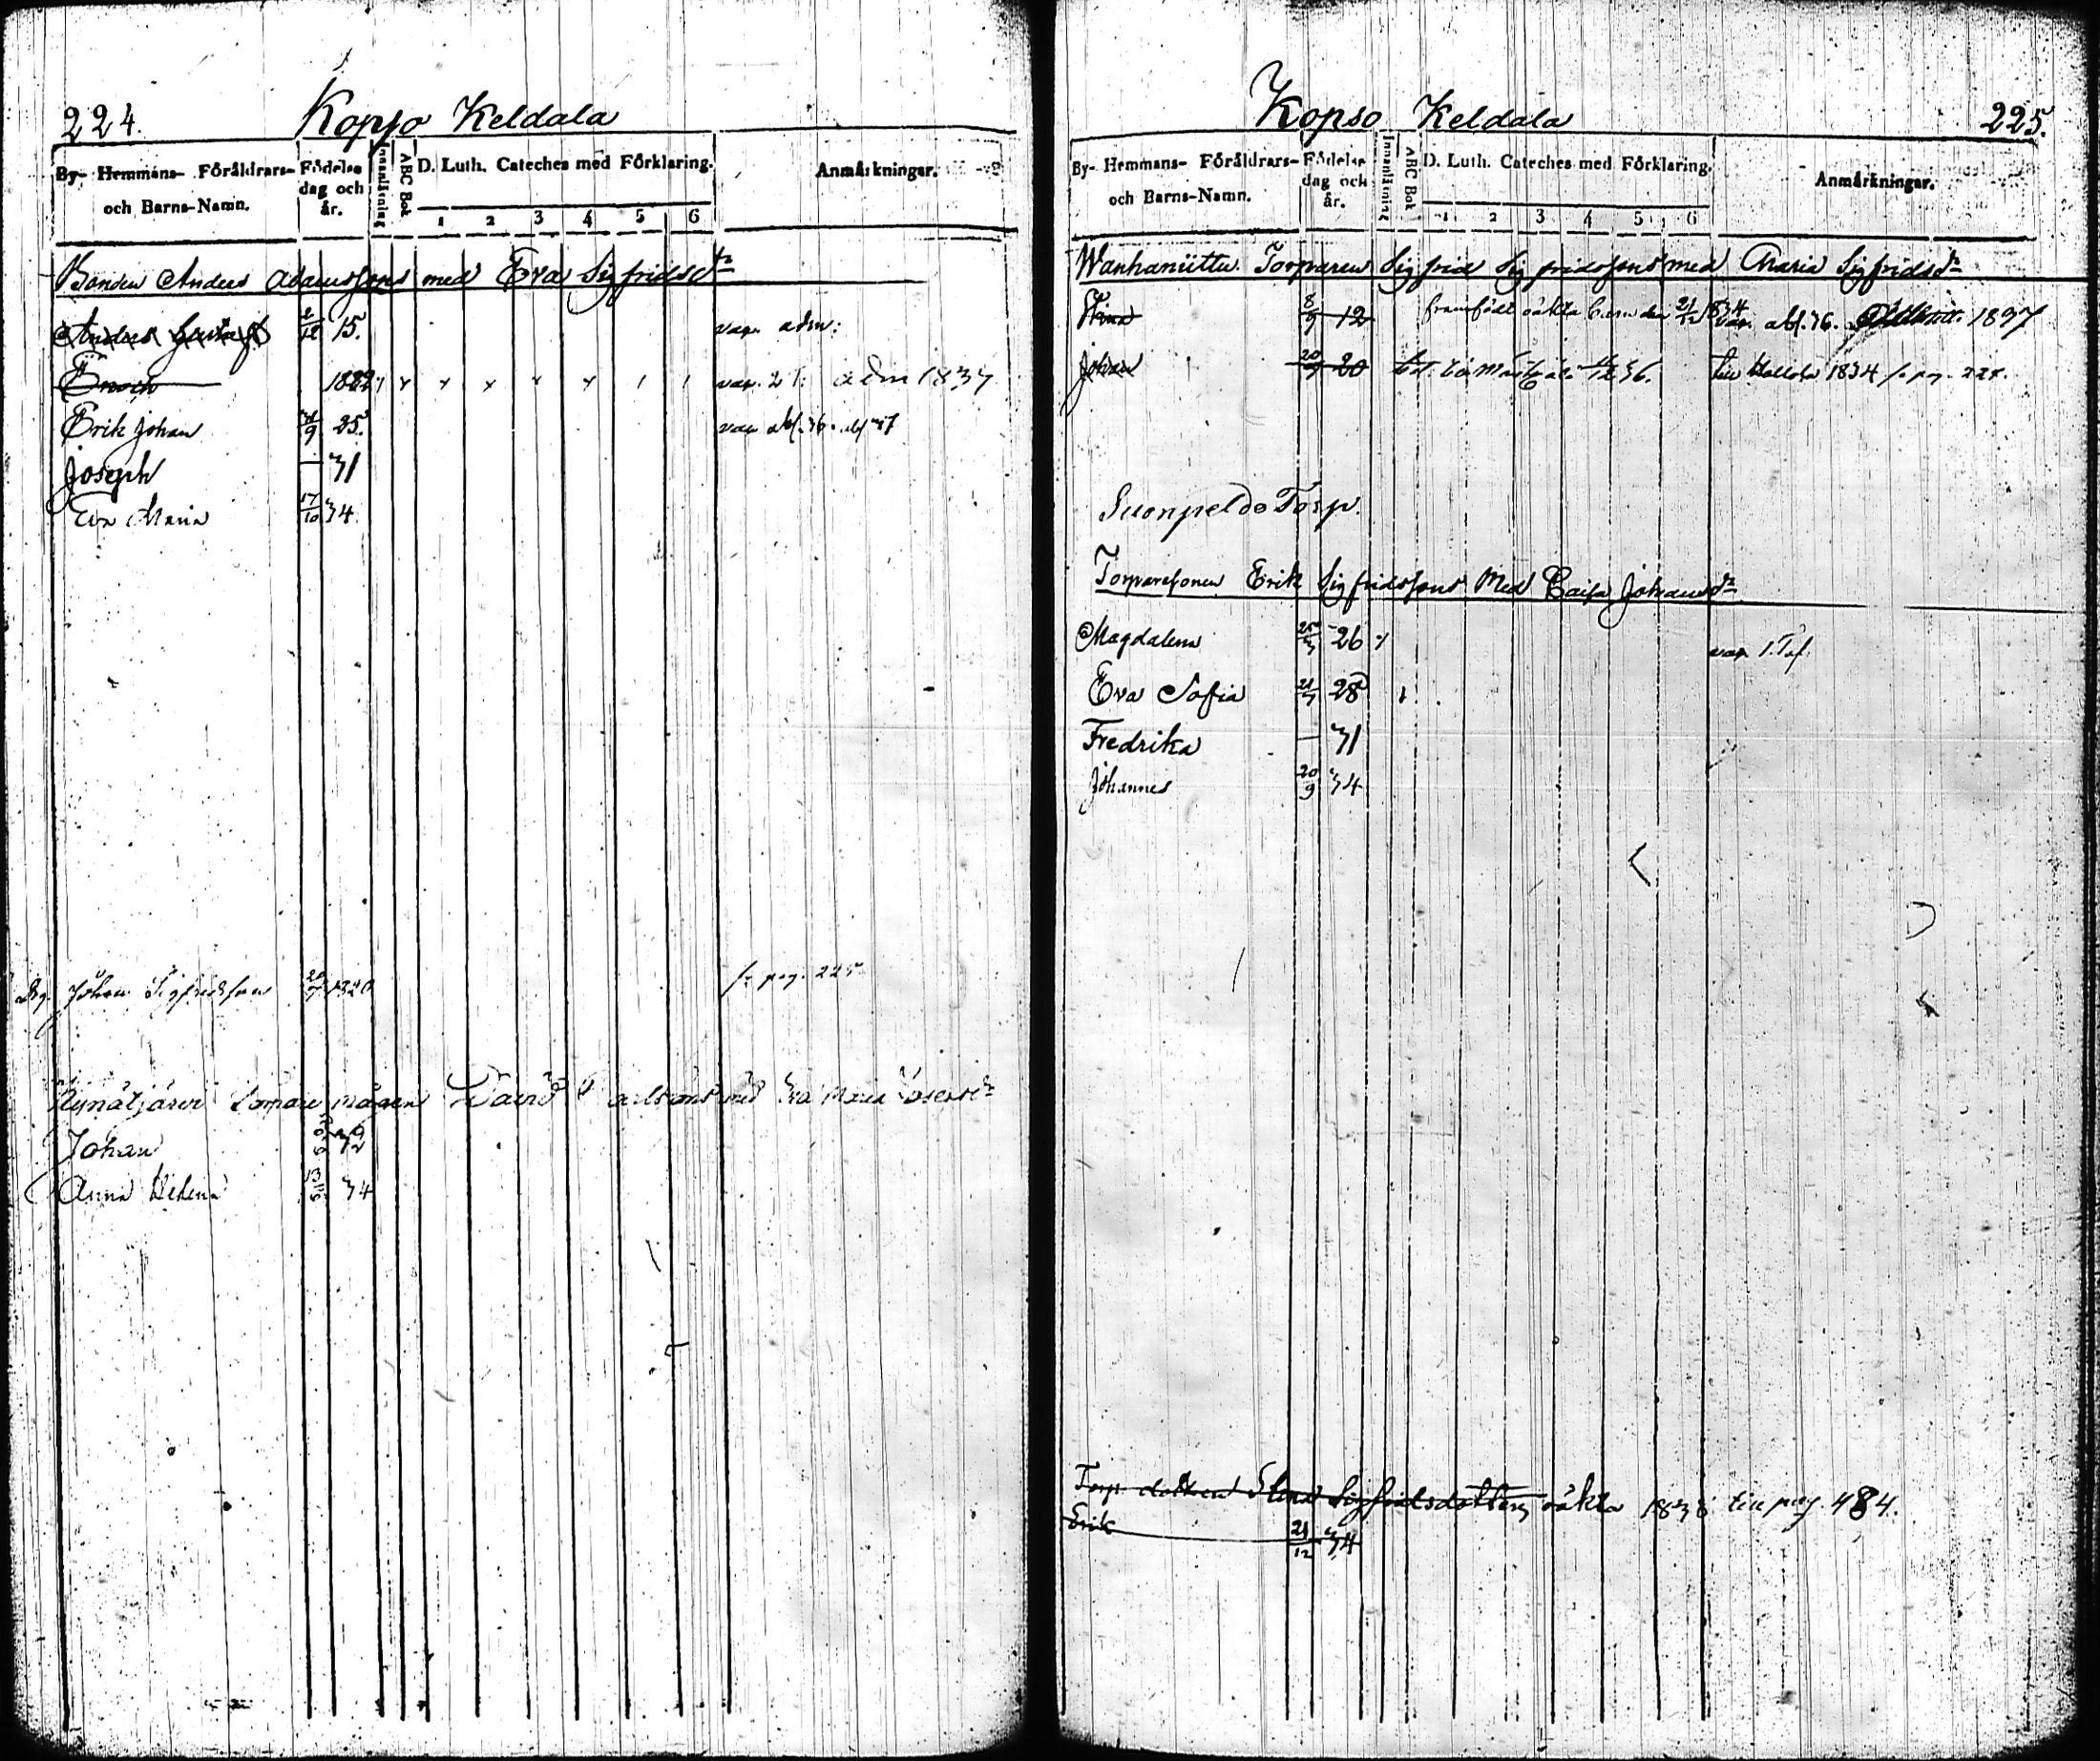 224. Kopso Keldala
By- Hemmans- Föräldrars- och Barns-Namn. Födelse dag och år. Innanläsning ABC Bok D. Luth. Cateches med Förklaring. 1 2 3 4 5 6 Anmärkningar.
Bonden Anders Adamssons med Eva Sigfridsdr
Anders Gustaf 2/12 15. vap. adm:
Enoch 1822 vap. 2 T. adm 1837
Erik Johan 9 25. vap abs. 36. abs 37
Joseph — 31
Eva Maria 17/10 34.
drg. Johan Sigfridsson 20/9 1820 fr. pag. 225
mågen David med Eva Maria
Johan 32
Anna Helena 13 34
Kopso Keldala 225.
By- Hemmans- Föräldrars- och Barns-Namn. Födelse dag och år. Innanläsning ABC Bok D. Luth. Cateches med Förklaring. 1 2 3 4 5 6 Anmärkningar.
Wanhaniittu. Torparen Sigfrid Sigfridssons med Maria Sigfridsdr
8/9 12 framfödt oäkta barn den 21/12 1834 vap. abs. 36. 1837
Johan 20/9 20 36. till 1834 fr. pag. 224.
Suonpeldo Torp.
Torparesonen Erik Sigfridssons med Caisa Johansdr
Magdalena 26 vap. 1. Taf.
Eva Sofia 21/7 28
Fredrika — 31
Johannes 20/9 34
Torp. dottren Sigfridsdotters oäkta till pag. 484.
Erik 21/12 34